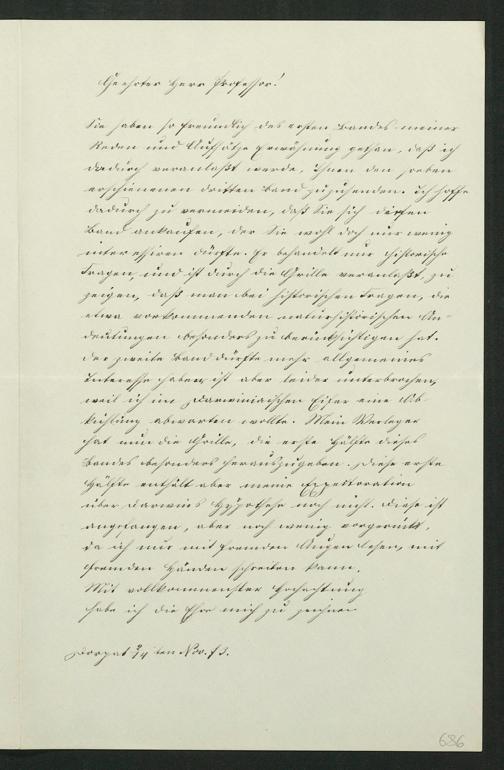 Geehrter Herr Professor!
Sie haben so freundlich des ersten Bandes meiner
Reden und Aufsätze Erwähnung gethan, daß ich
dadurch veranlaßt werde, Ihnen den soeben
erschienenen dritten Band zuzusenden. Ich hoffe
dadurch zu vermeiden, daß Sie sich diesen
Band ankaufen, der Sie wohl doch nur wenig
interessiren dürfte. Er behandelt nur historische
Fragen, und ist durch die Grille veranlaßt, zu
zeigen, daß man bei historischen Fragen, die
etwa vorkommenden naturhistorischen An-
deutungen besonders zu berücksichtigen hat.
Der zweite Band dürfte mehr allgemeines
Interesse haben, ist aber leider unterbrochen,
weil ich im Darwinischen Eifer eine Ab-
kühlung abwarten wollte. Mein Verleger
hat nun die Grille, die erste Hälfte dieses
Bandes besonders herauszugeben. Diese erste
Hälfte enthält aber meine Expectoration
über Darwins Hypothese noch nicht. Diese ist
angefangen, aber noch wenig vorgerückt,
da ich nur mit fremden Augen lesen, mit
fremden Händen schreiben kann.
Mit vollkommenster Hochachtung
habe ich die Ehre mich zu zeichnen
Dorpat ten Nov. 73.
686